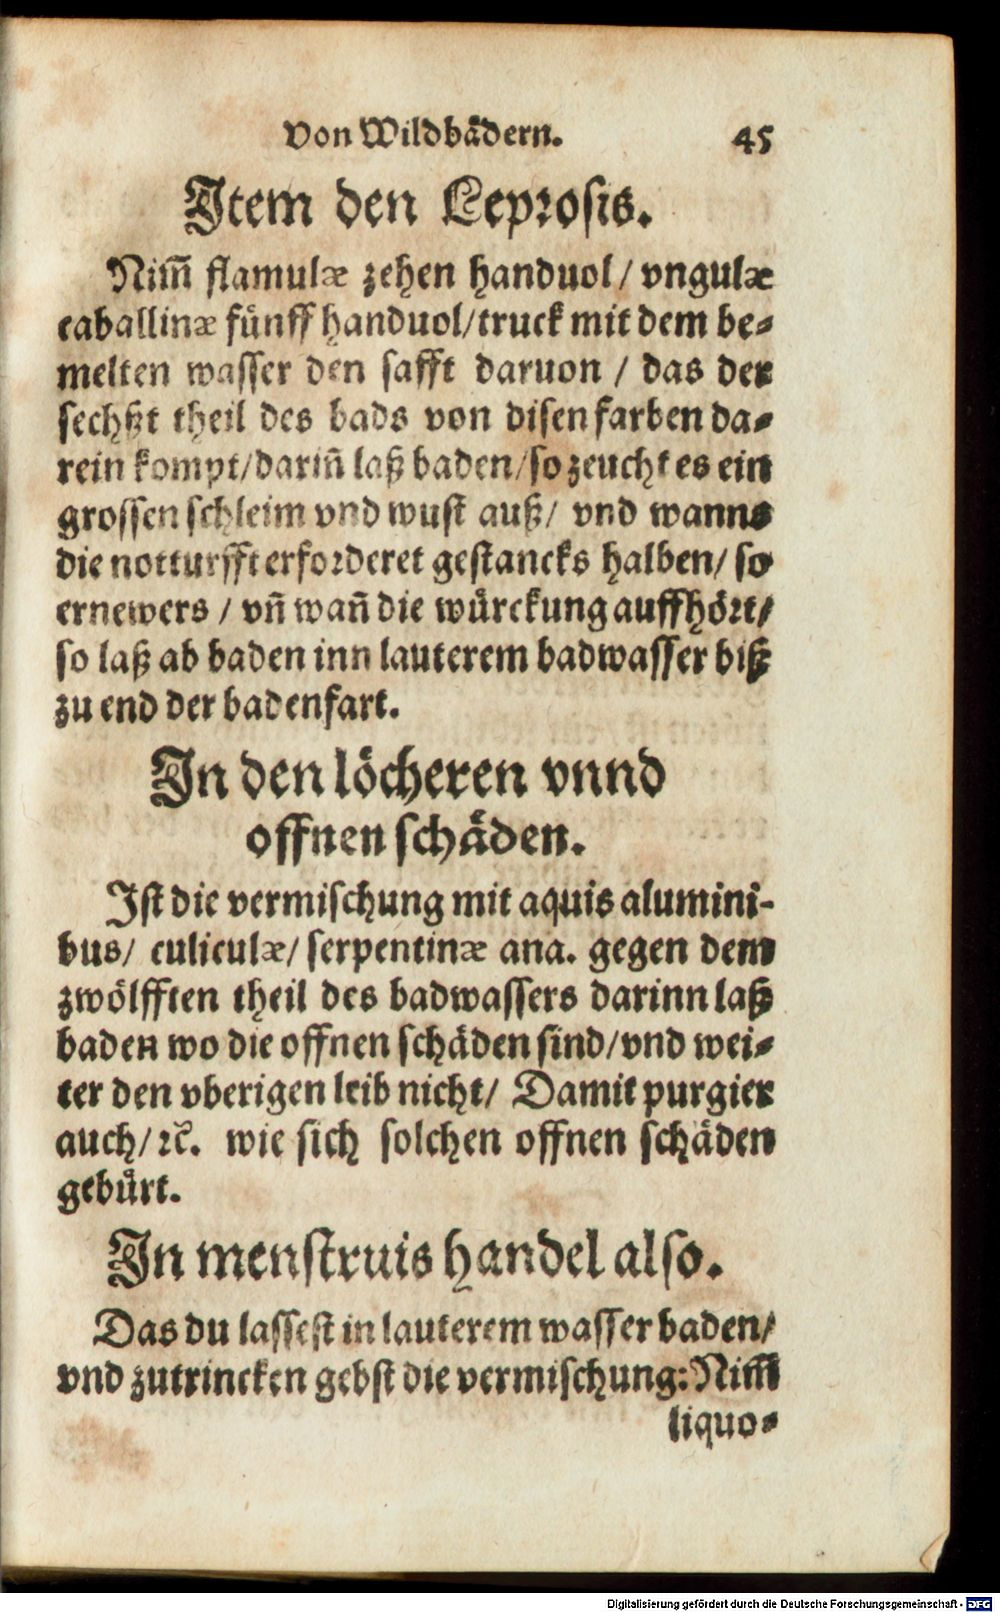 Von Wildbådern. 45
Item den Leprosis.
Nim̃ flamulæ zehen handuol / vngulæ
caballinæ fünff handuol / truck mit dem be-
melten wasser den safft daruon / das der
sechßt theil des bads von disen farben da-
rein kompt / dariñ laß baden / so zeucht es ein
grossen schleim vnd wust auß / vnd wanns
die notturfft erforderet gestancks halben / so
ernewers / vñ wañ die würckung auffhört /
so laß ab baden inn lauterem badwasser biß
zu end der badenfart.
In den löcheren vnnd
offnen schäden.
Ist die vermischung mit aquis alumini-
bus / culiculæ / serpentinæ ana. gegen dem
zwölfften theil des badwassers darinn laß
baden wo die offnen schäden sind / vnd wei-
ter den vberigen leib nicht / Damit purgier
auch / ꝛc̃. wie sich solchen offnen schäden
gebürt.
In menstruis handel also.
Das du lassest in lauterem wasser baden /
vnd zutrincken gebst die vermischung: Nim̃
liquo-
Digitalisierung gefördert durch die Deutsche Forschungsgemeinschaft - DFG